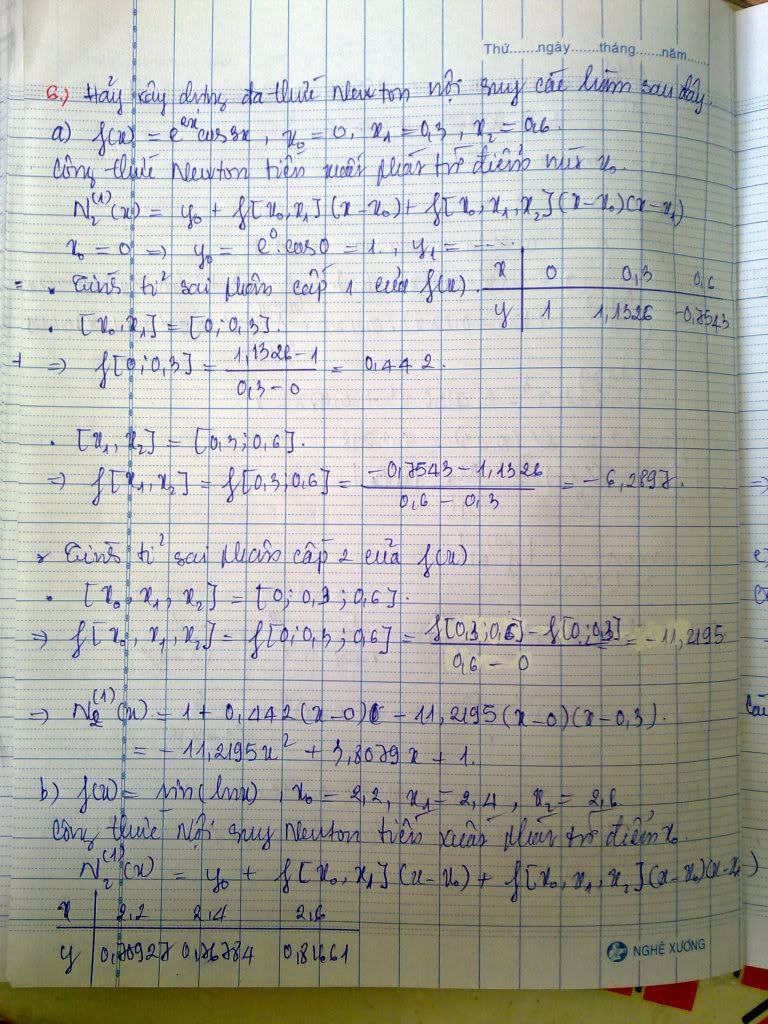 Thứ.......ngày.......tháng.......năm.......
6.) Hãy xây dựng đa thức Newton nội suy các hàm sau đây.
a) f(x) = e^{2x}cos3x , x₀ = 0, x₁ = 0,3 , x₂ = 0,6.
Công thức Newton tiến xuất phát từ điểm nút x₀.
N₂⁽¹⁾(x) = y₀ + f[x₀,x₁](x-x₀) + f[x₀,x₁,x₂](x-x₀)(x-x₁)
x₀ = 0 => y₀ = e⁰.cos0 = 1. , y₁ = ......
Tính tỉ sai phân cấp 1 của f(x).
x | 0 0,3 0,6
y | 1 1,1326 -0,7543
• [x₀,x₁] = [0;0,3].
=> f[0;0,3] = (1,1326-1)/(0,3-0) = 0,442.
• [x₁,x₂] = [0,3;0,6].
=> f[x₁,x₂] = f[0,3;0,6] = (-0,7543-1,1326)/(0,6-0,3) = -6,2897.
Tính tỉ sai phân cấp 2 của f(x)
• [x₀,x₁,x₂] = [0;0,3;0,6].
=> f[x₀,x₁,x₂] = f[0;0,3;0,6] = (f[0,3;0,6]-f[0;0,3])/(0,6-0) = -11,2195
=> N₂⁽¹⁾(x) = 1 + 0,442(x-0) -11,2195(x-0)(x-0,3).
= -11,2195x² + 3,8079x + 1.
b) f(x) = sin(lnx) , x₀ = 2,2, x₁ = 2,4 , x₂ = 2,6
Công thức nội suy Newton tiến xuất phát từ điểm x₀
N₂⁽¹⁾(x) = y₀ + f[x₀,x₁](x-x₀) + f[x₀,x₁,x₂](x-x₀)(x-x₁)
x | 2,2 2,4 2,6
y | 0,70927 0,76784 0,81661
NGHÊ XƯƠNG